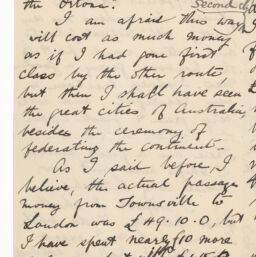 the Ortona.
Second cl
I am afraid this way
will cost as much money
as if I had gone first
class by the other route,
but then I shall have seen
the great cities of Australia,
besides the ceremony of
federating the continent.
As I said before, I
believe, the actual passage
money from Townsville to
London was £49.10.0, but
I have spent nearly £10 more